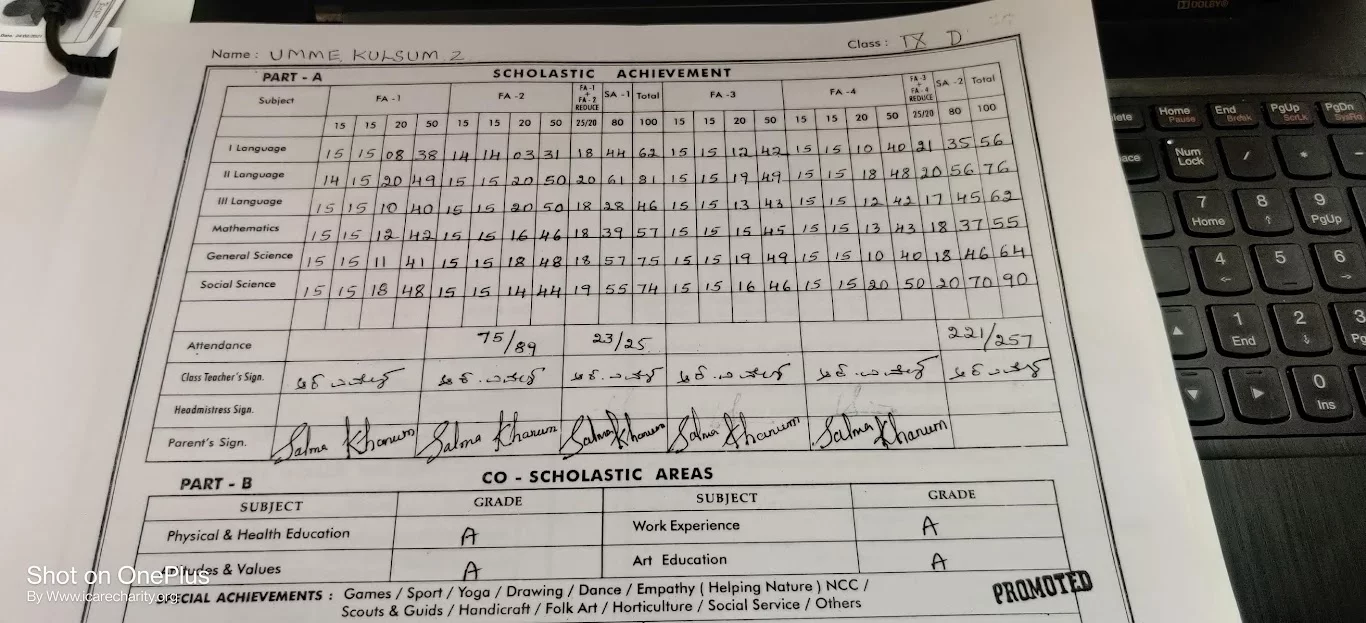 Name : UMME KULSUM Z Class : IX D
PART - A SCHOLASTIC ACHIEVEMENT
Subject FA -1 FA -2 FA -1 + FA -2 REDUCE SA -1 Total FA -3 FA -4 FA -3 + FA -4 REDUCE SA -2 Total
15 15 20 50 15 15 20 50 25/20 80 100 15 15 20 50 15 15 20 50 25/20 80 100
I Language 15 15 08 38 14 14 03 31 18 44 62 15 15 12 42 15 15 10 40 21 35 56
II Language 14 15 20 49 15 15 20 50 20 61 81 15 15 19 49 15 15 18 48 20 56 76
III Language 15 15 10 40 15 15 20 50 18 28 46 15 15 13 43 15 15 12 42 17 45 62
Mathematics 15 15 12 42 15 15 16 46 18 39 57 15 15 15 45 15 15 13 43 18 37 55
General Science 15 15 11 41 15 15 18 48 18 57 75 15 15 19 49 15 15 10 40 18 46 64
Social Science 15 15 18 48 15 15 14 44 19 55 74 15 15 16 46 15 15 20 50 20 70 90
Attendance 75/89 23/25 221/257
Class Teacher's Sign.
Headmistress Sign.
Parent's Sign. Salma Khanum Salma Khanum Salma Khanum Salma Khanum Salma Khanum
PART - B CO - SCHOLASTIC AREAS
SUBJECT GRADE SUBJECT GRADE
Physical & Health Education A Work Experience A
& Values A Art Education A
ACHIEVEMENTS : Games / Sport / Yoga / Drawing / Dance / Empathy ( Helping Nature ) NCC /
Scouts & Guids / Handicraft / Folk Art / Horticulture / Social Service / Others
PROMOTED
Shot on OnePlus
By Www.icarecharity.org
DOLBY
Home Pause End Break PgUp ScrLk PgDn SysRq
Num Lock / * -
7 Home 8 ↑ 9 PgUp
4 ← 5 6 →
1 End 2 ↓ 3
0 Ins